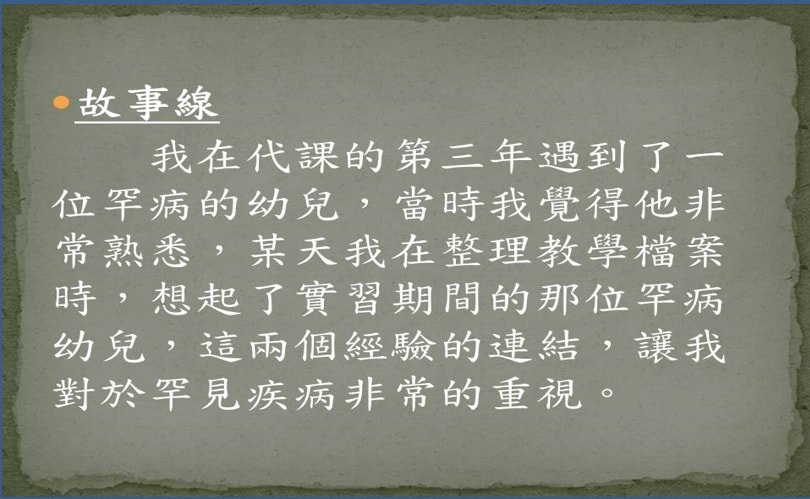 •故事線
我在代課的第三年遇到了一
位罕病的幼兒，當時我覺得他非
常熟悉，某天我在整理教學檔案
時，想起了實習期間的那位罕病
幼兒，這兩個經驗的連結，讓我
對於罕見疾病非常的重視。